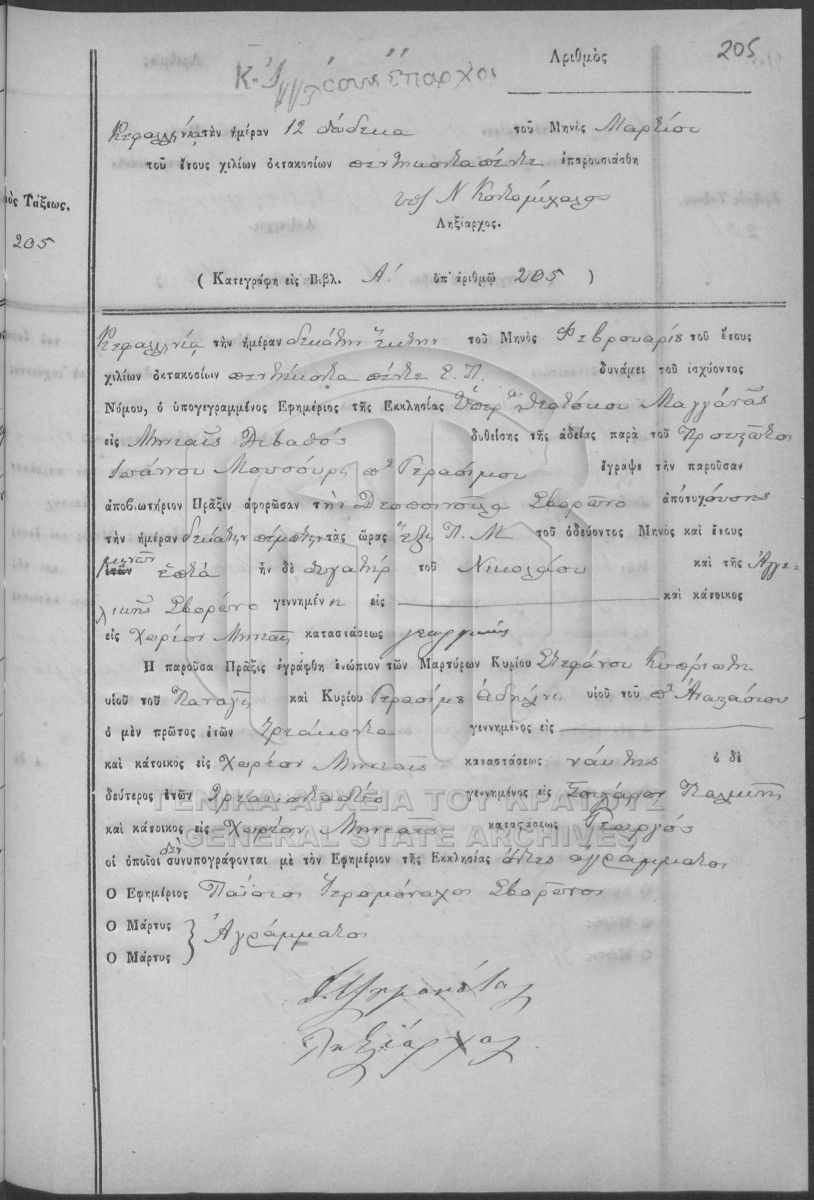 Ἀριθμὸς 205
ἔπαρχοι
Κεφαλληνίᾳ τὴν ἡμέραν 12 δώδεκα τοῦ Μηνὸς Μαρτίου
τοῦ ἔτους χιλίων ὀκτακοσίων πεντήκοντα πέντε ἐπαρουσιάσθη
Ν Κοντομίχαλο
Ληξίαρχος.
ὸς Τάξεως.
205
( Κατεγράφη εἰς Βιβλ. Α΄ ὑπ' ἀριθμῷ 205 )
Κεφαλληνίᾳ τὴν ἡμέραν δεκάτην ἕκτην τοῦ Μηνὸς Φεβρουαρίου τοῦ ἔτους
χιλίων ὀκτακοσίων πεντήκοντα πέντε Ε. Π. δυνάμει τοῦ ἰσχύοντος
Νόμου, ὁ ὑπογεγραμμένος Ἐφημέριος τῆς Ἐκκλησίας Ὑπερ Θεοτόκου
εἰς Μηνιαῖς Λιβαθὸς δοθείσης τῆς ἀδείας παρὰ τοῦ
Ἰωάννου Μουσούρη π Γερασίμου ἔγραψε τὴν παροῦσαν
ἀποβιωτήριον Πρᾶξιν ἀφορῶσαν τὴν Δεσποινοῦλα Σβορῶνο ἀποτυχούσης
τὴν ἡμέραν δεκάτην πέμπτην τὰς ὥρας ἕξι Π. Μ τοῦ ὁδεύοντος Μηνὸς καὶ ἔτους
μηνῶν
ἐτῶν ἑπτά ἦν δὲ θυγάτηρ τοῦ Νικολάου καὶ τῆς Ἀγγε-
λικῆς Σβορῶνο γεννημένη εἰς καὶ κάτοικος
εἰς Χωρίον Μηνιαῖς καταστάσεως γεωργικῆς
Ἡ παροῦσα Πρᾶξις ἐγράφθη ἐνώπιον τῶν Μαρτύρων Κυρίου Στεφάνου Κυπριώτη
υἱοῦ τοῦ Παναγῆ καὶ Κυρίου Γερασίμου υἱοῦ τοῦ π Ἀναστασίου
ὁ μὲν πρῶτος ἐτῶν τριάκοντα γεννημένος εἰς
καὶ κάτοικος εἰς Χωρίον Μηνιαῖς καταστάσεως ναύτης ὁ δὲ
δεύτερος ἐτῶν τριακονταδύο γεννημένος εἰς
καὶ κάτοικος εἰς Χωρίον Μηνιαῖς καταστάσεως Γεωργός
οἱ ὁποῖοι δὲν συνυπογράφονται μὲ τὸν Ἐφημέριον τῆς Ἐκκλησίας ὄντες ἀγράμματοι
Ὁ Ἐφημέριος Παΐσιος Ἱερομόναχος Σβορῶνος
Ὁ Μάρτυς
Ὁ Μάρτυς } Ἀγράμματοι
Ληξίαρχος
ΓΕΝΙΚΑ ΑΡΧΕΙΑ ΤΟΥ ΚΡΑΤΟΥΣ
GENERAL STATE ARCHIVES